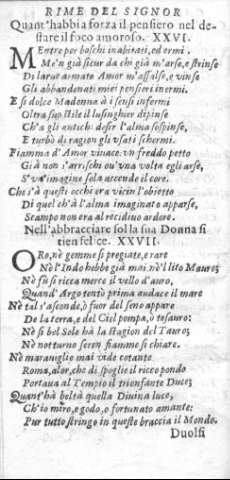 RIME DEL SIGNOR
Quant'habbia forza il pensiero nel de-
stare il foco amoroso. XXVI.
MEntre per boschi inabitati, ed ermi
Me'n già sicur da chi già m'arse, e strinse
Di larue armato Amor m'assalse, e vinse
Gli abbandonati miei pensieri inermi.
E sì dolce Madonna à i sensi infermi
Oltra suo stile il lusinghier dipinse
Ch'a gli antichi desir l'alma sospinse,
E turbò di ragion gli usati schermi.
Fiamma d'Amor viuace. vn freddo petto
Già non s'arrischi ou'vna volta egli arse,
S'vn'imagine sola accende il core.
Che s'à questi occhi era vicin l'obietto
Di quel ch'à l'alma imaginato apparse,
Scampo non era al recidiuo ardore.
Nell'abbracciare sol la sua Donna si
tien felice. XXVII.
ORo, nè gemme sì pregiate, e rare
Nè l'Indo hebbe già mai, nè'l lito Mauro;
Nè fù sì ricca merce il vello d'auro,
Quand'Argo tentò prima audace il mare
Nè tal s'asconde, ò fuor del seno appare
De la terra, e del Ciel pompa, ò tesauro:
Nè sì bel Sole hà la stagion del Tauro;
Nè notturno seren fiamme sì chiare.
Nè marauiglie mai vide cotante
Roma, alor, che di spoglie il ricco pondo
Portaua al Tempio il trionfante Duce;
Quant'hà beltà quella Diuina luce,
Ch'io miro, e godo, o fortunato amante:
Pur tutto stringo in queste braccia il Mondo.
Duolsi